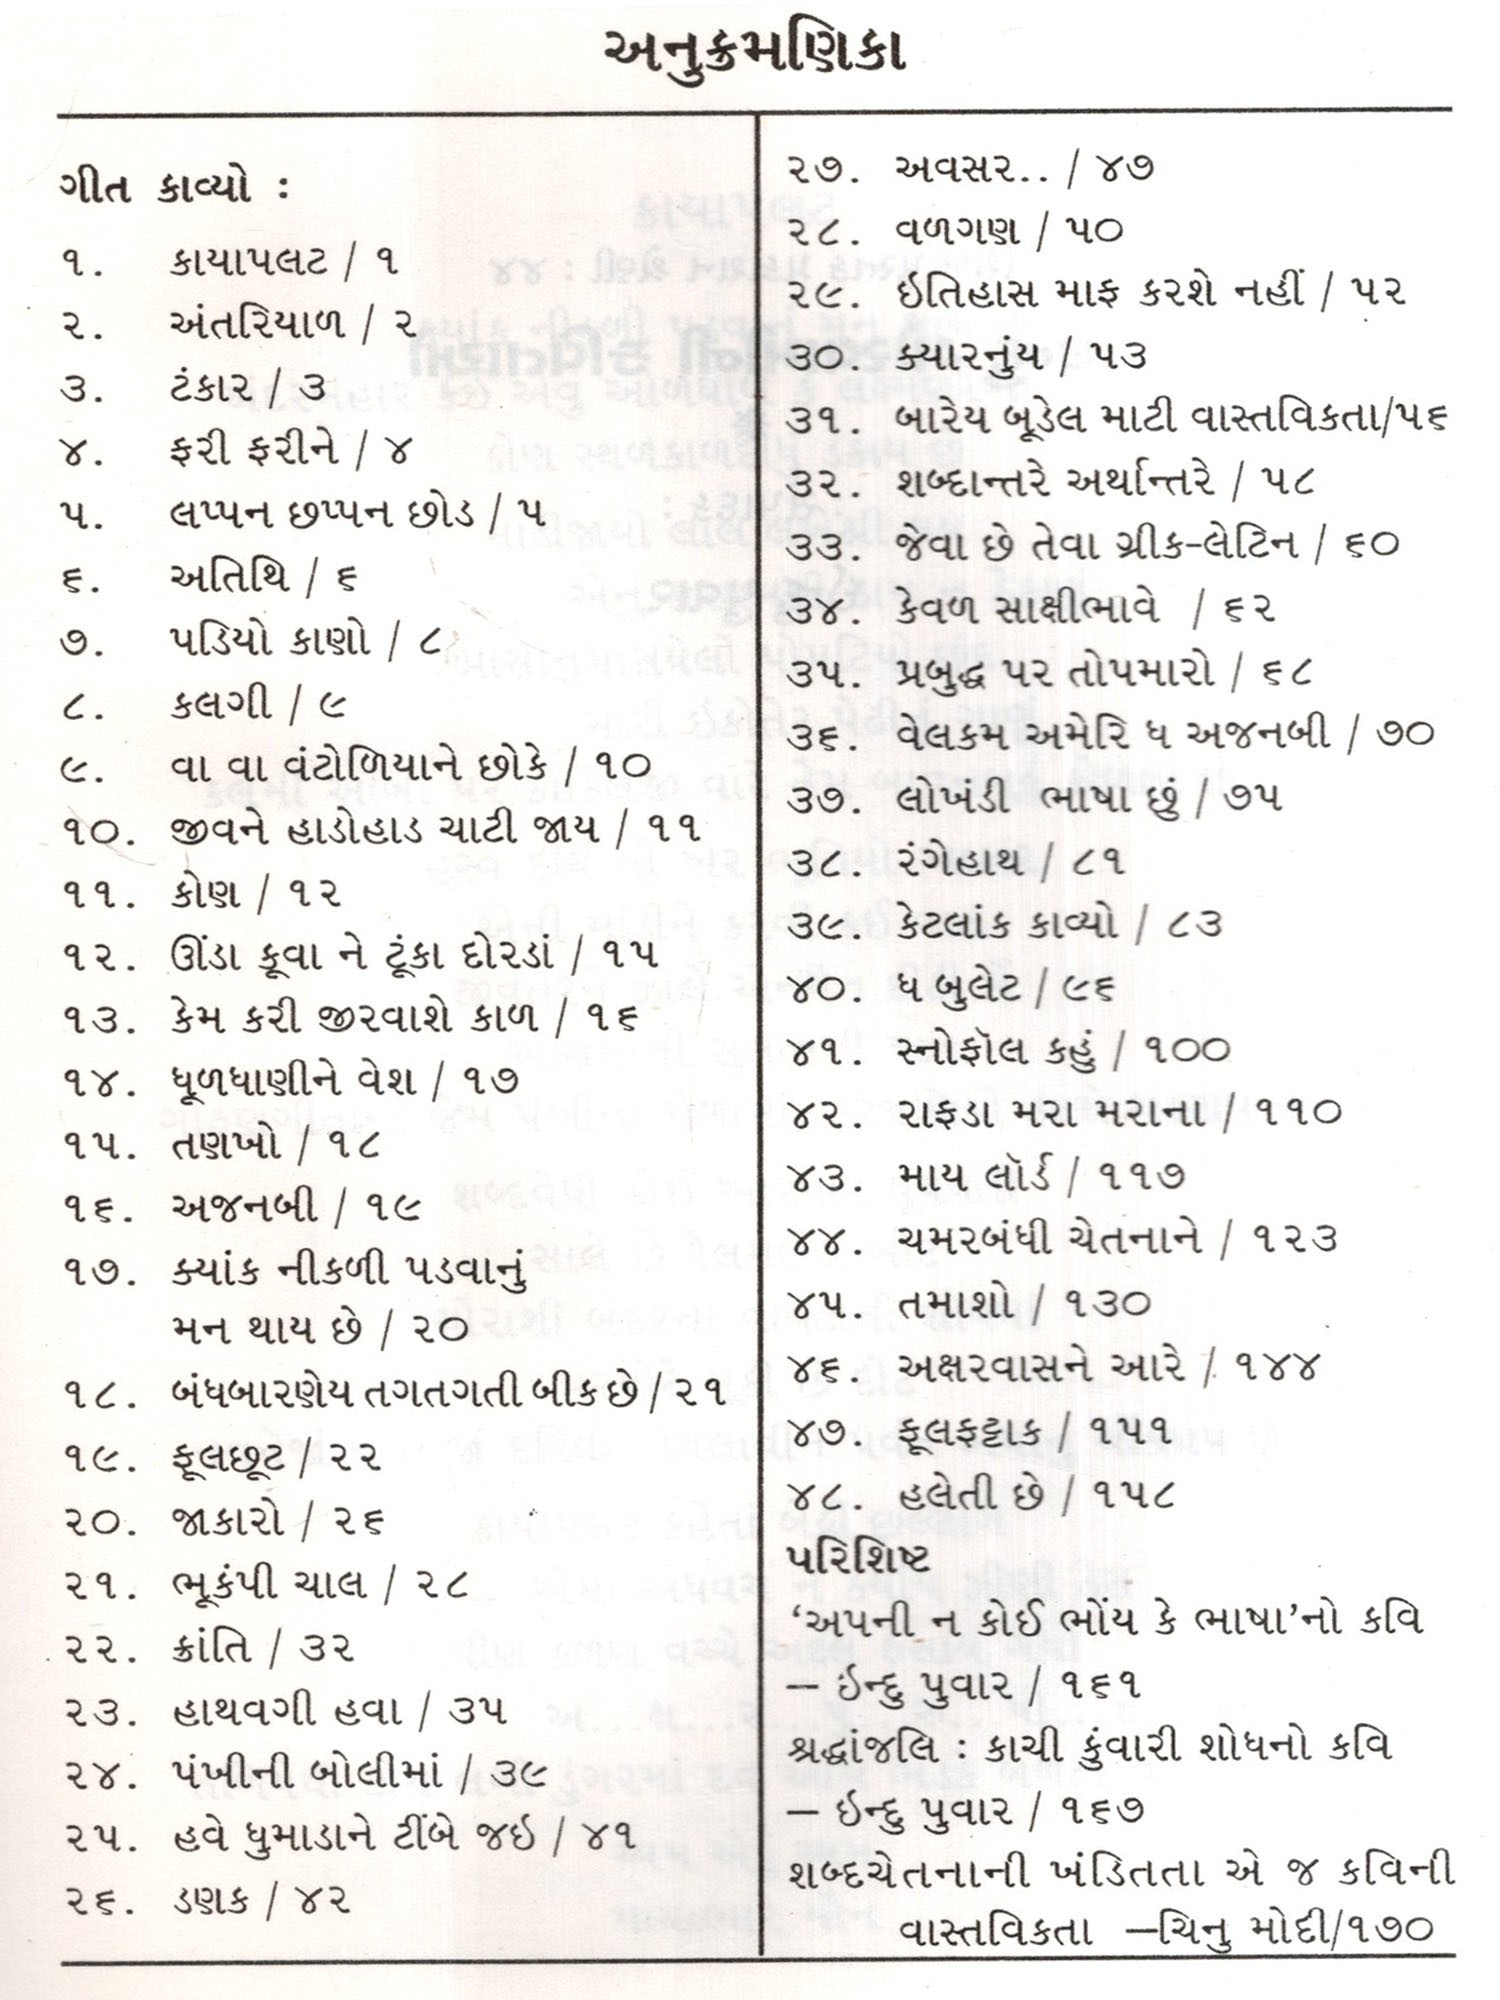 અનુક્રમણિકા
ગીત કાવ્યો :
૧. કાયાપલટ / ૧
૨. અંતરિયાળ / ૨
૩. ટંકાર / ૩
૪. ફરી ફરીને / ૪
૫. લપ્પન છપ્પન છોડ / ૫
૬. અતિથિ / ૬
૭. પડિયો કાણો / ૮
૮. કલગી / ૯
૯. વા વા વંટોળિયાને છોકે / ૧૦
૧૦. જીવને હાડોહાડ ચાટી જાય / ૧૧
૧૧. કોણ / ૧૨
૧૨. ઊંડા કૂવા ને ટૂંકા દોરડાં / ૧૫
૧૩. કેમ કરી જીરવાશે કાળ / ૧૬
૧૪. ધૂળધાણીને વેશ / ૧૭
૧૫. તણખો / ૧૮
૧૬. અજનબી / ૧૯
૧૭. ક્યાંક નીકળી પડવાનું
મન થાય છે / ૨૦
૧૮. બંધબારણેય તગતગતી બીક છે / ૨૧
૧૯. ફૂલછૂટ / ૨૨
૨૦. જાકારો / ૨૬
૨૧. ભૂકંપી ચાલ / ૨૮
૨૨. ક્રાંતિ / ૩૨
૨૩. હાથવગી હવા / ૩૫
૨૪. પંખીની બોલીમાં / ૩૯
૨૫. હવે ધુમાડાને ટીંબે જઇ / ૪૧
૨૬. ડણક / ૪૨
૨૭. અવસર.. / ૪૭
૨૮. વળગણ / ૫૦
૨૯. ઇતિહાસ માફ કરશે નહીં / ૫૨
૩૦. ક્યારનુંય / ૫૩
૩૧. બારેય બૂડેલ માટી વાસ્તવિકતા/૫૬
૩૨. શબ્દાન્તરે અર્થાન્તરે / ૫૮
૩૩. જેવા છે તેવા ગ્રીક-લેટિન / ૬૦
૩૪. કેવળ સાક્ષીભાવે / ૬૨
૩૫. પ્રબુદ્ધ પર તોપમારો / ૬૮
૩૬. વેલકમ અમેરિ ધ અજનબી / ૭૦
૩૭. લોખંડી ભાષા છું / ૭૫
૩૮. રંગેહાથ / ૮૧
૩૯. કેટલાંક કાવ્યો / ૮૩
૪૦. ધ બુલેટ / ૯૬
૪૧. સ્નોફૉલ કહું / ૧૦૦
૪૨. રાફડા મરા મરાના / ૧૧૦
૪૩. માય લૉર્ડ / ૧૧૭
૪૪. ચમરબંધી ચેતનાને / ૧૨૩
૪૫. તમાશો / ૧૩૦
૪૬. અક્ષરવાસને આરે / ૧૪૪
૪૭. ફૂલફટ્ટાક / ૧૫૧
૪૮. હલેતી છે / ૧૫૮
પરિશિષ્ટ
‘અપની ન કોઈ ભોંય કે ભાષા’નો કવિ
– ઇન્દુ પુવાર / ૧૬૧
શ્રદ્ધાંજલિ : કાચી કુંવારી શોધનો કવિ
– ઇન્દુ પુવાર / ૧૬૭
શબ્દચેતનાની ખંડિતતા એ જ કવિની
વાસ્તવિકતા –ચિનુ મોદી/૧૭૦